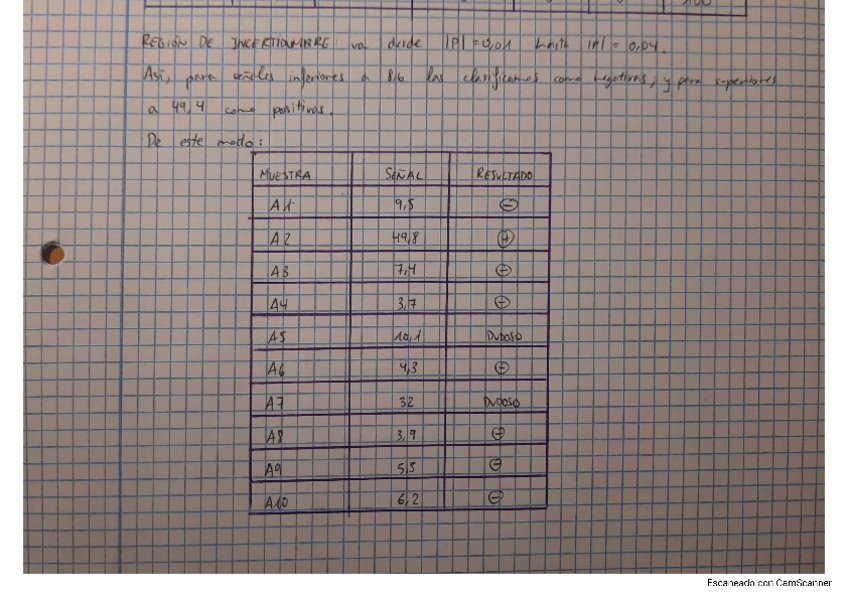 100
REGIÓN DE INCERTIDUMBRE: va desde |P| = 0,01 hasta |P| = 0,04.
Así, para señales inferiores a 8,6 las clasificamos como negativas, y para superiores
a 49,4 como positivas.
De este modo:
MUESTRA SEÑAL RESULTADO
A1 9,5 ⊖
A2 49,8 ⊕
A3 7,4 ⊖
A4 3,7 ⊖
A5 10,1 DUDOSO
A6 4,3 ⊖
A7 32 DUDOSO
A8 3,9 ⊖
A9 5,5 ⊖
A10 6,2 ⊖
Escaneado con CamScanner